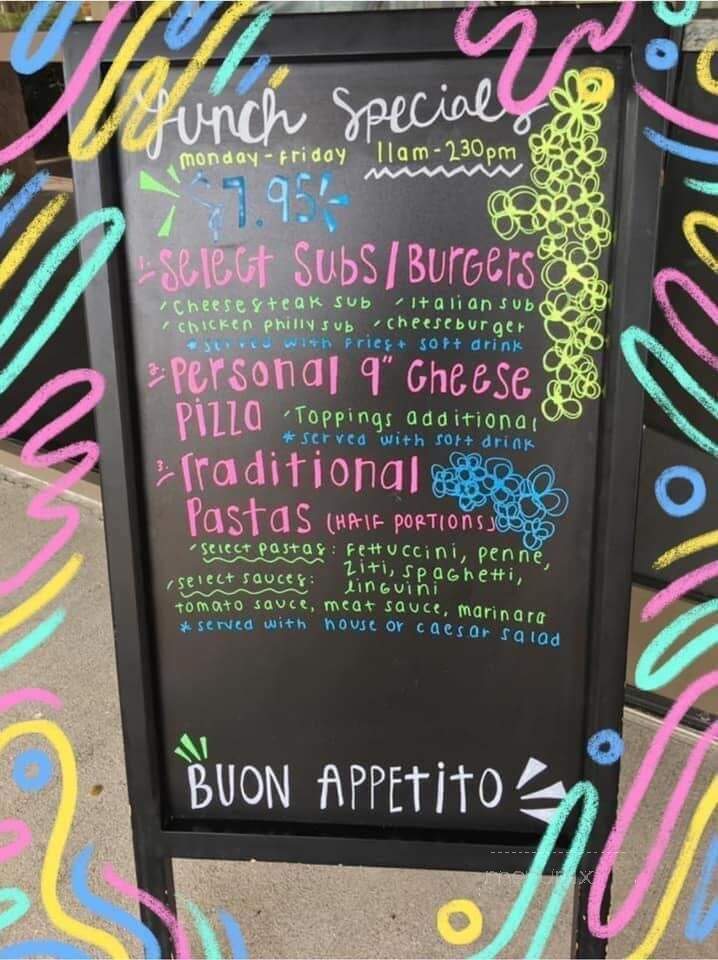 Lunch Specials
monday - Friday 11am - 230pm
$7.95
1:- Select Subs / Burgers
Cheesesteak sub Italian sub
chicken philly sub cheeseburger
*served with fries + soft drink
2:- Personal 9" Cheese
Pizza Toppings additional
*served with soft drink
3:- Traditional
Pastas (Half Portions)
select pastas: Fettuccini, penne,
ziti, spaghetti,
linguini
select sauces:
tomato sauce, meat sauce, marinara
*served with house or caesar salad
BUON APPETITO